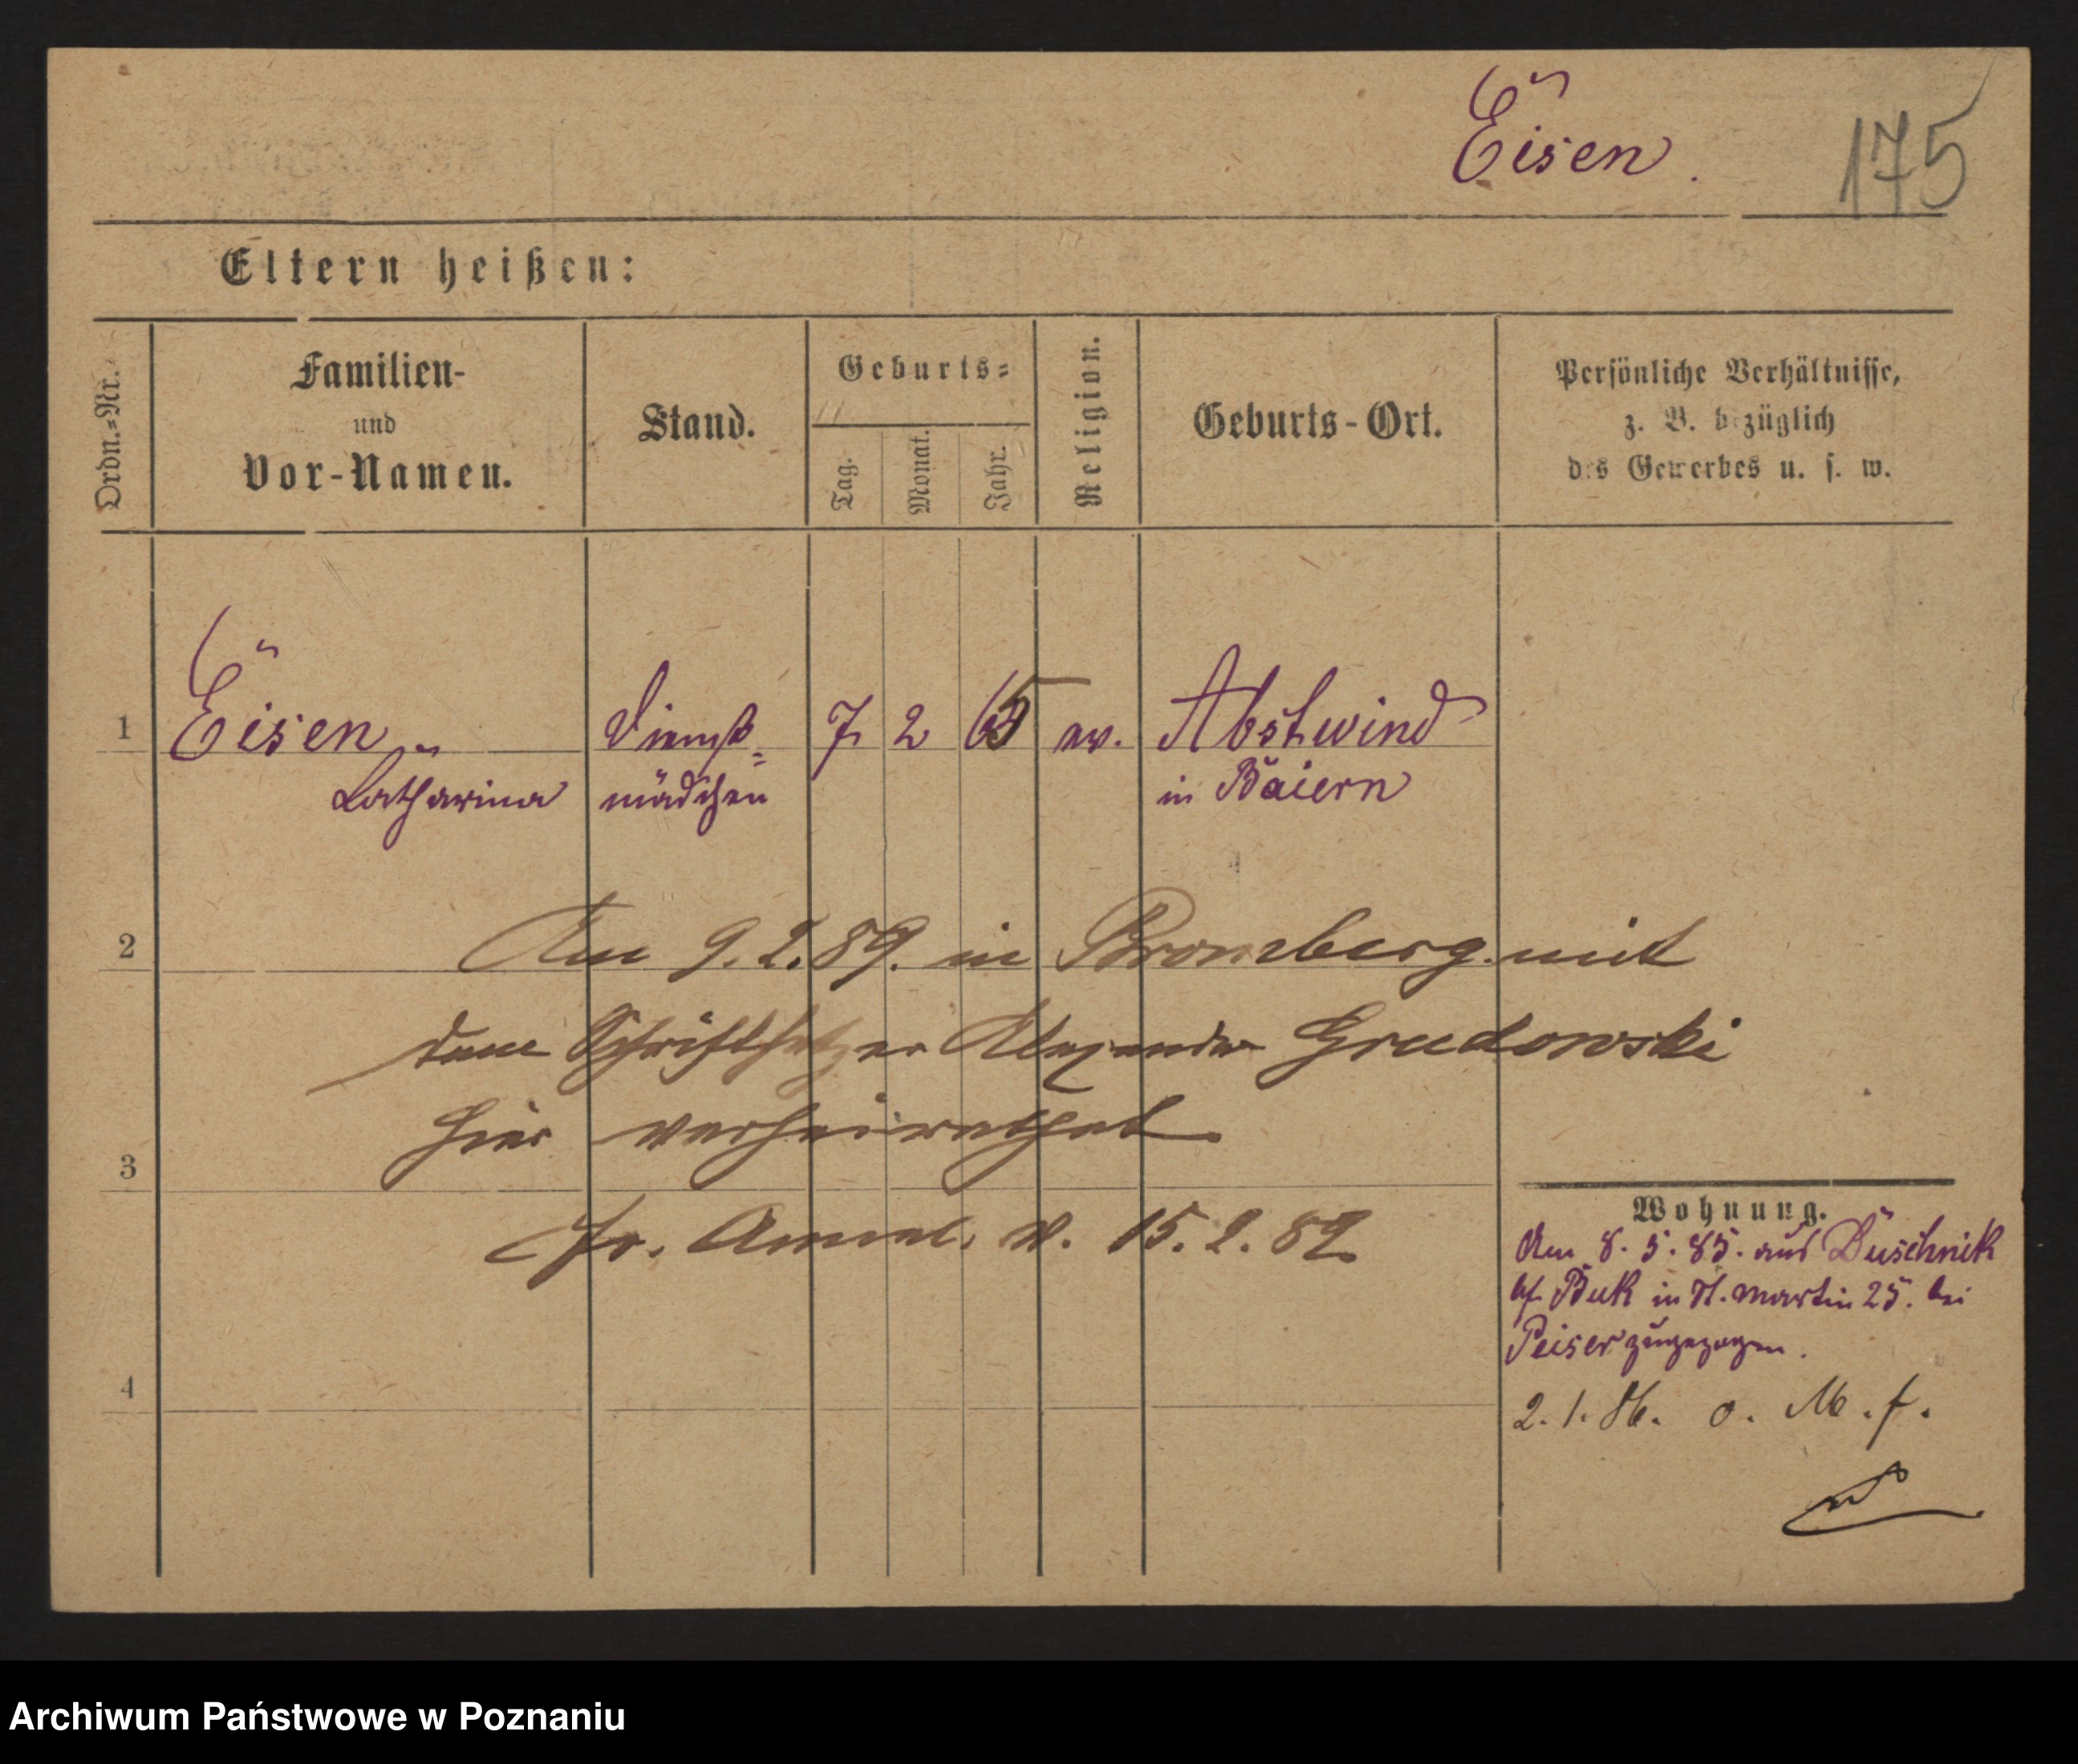 Eisen.
175
Eltern heißen:
Ordn.=Nr.
Familien-
und
Vor-Namen.
Stand.
Geburts=
Tag.
Monat.
Jahr.
Religion.
Geburts-Ort.
Persönliche Verhältnisse,
z. B. bezüglich
des Gewerbes u. s. w.
1 Eisen Dienst= 7 2 65 ev. Abstwind
Catharina mädchen in Baiern
2
Am 9.2.89. in Bromberg mit
dem Schriftsetzer Alexander Grudowski
hier verheirathet
3
Fr. Anml. v. 15.2.89
Wohnung.
Am 8.5.85. aus Duschnik
b/ Buk in St. Martin 25. bei
Peiser zugezogen.
4
2.1.86. o. M. f.
Archiwum Państwowe w Poznaniu